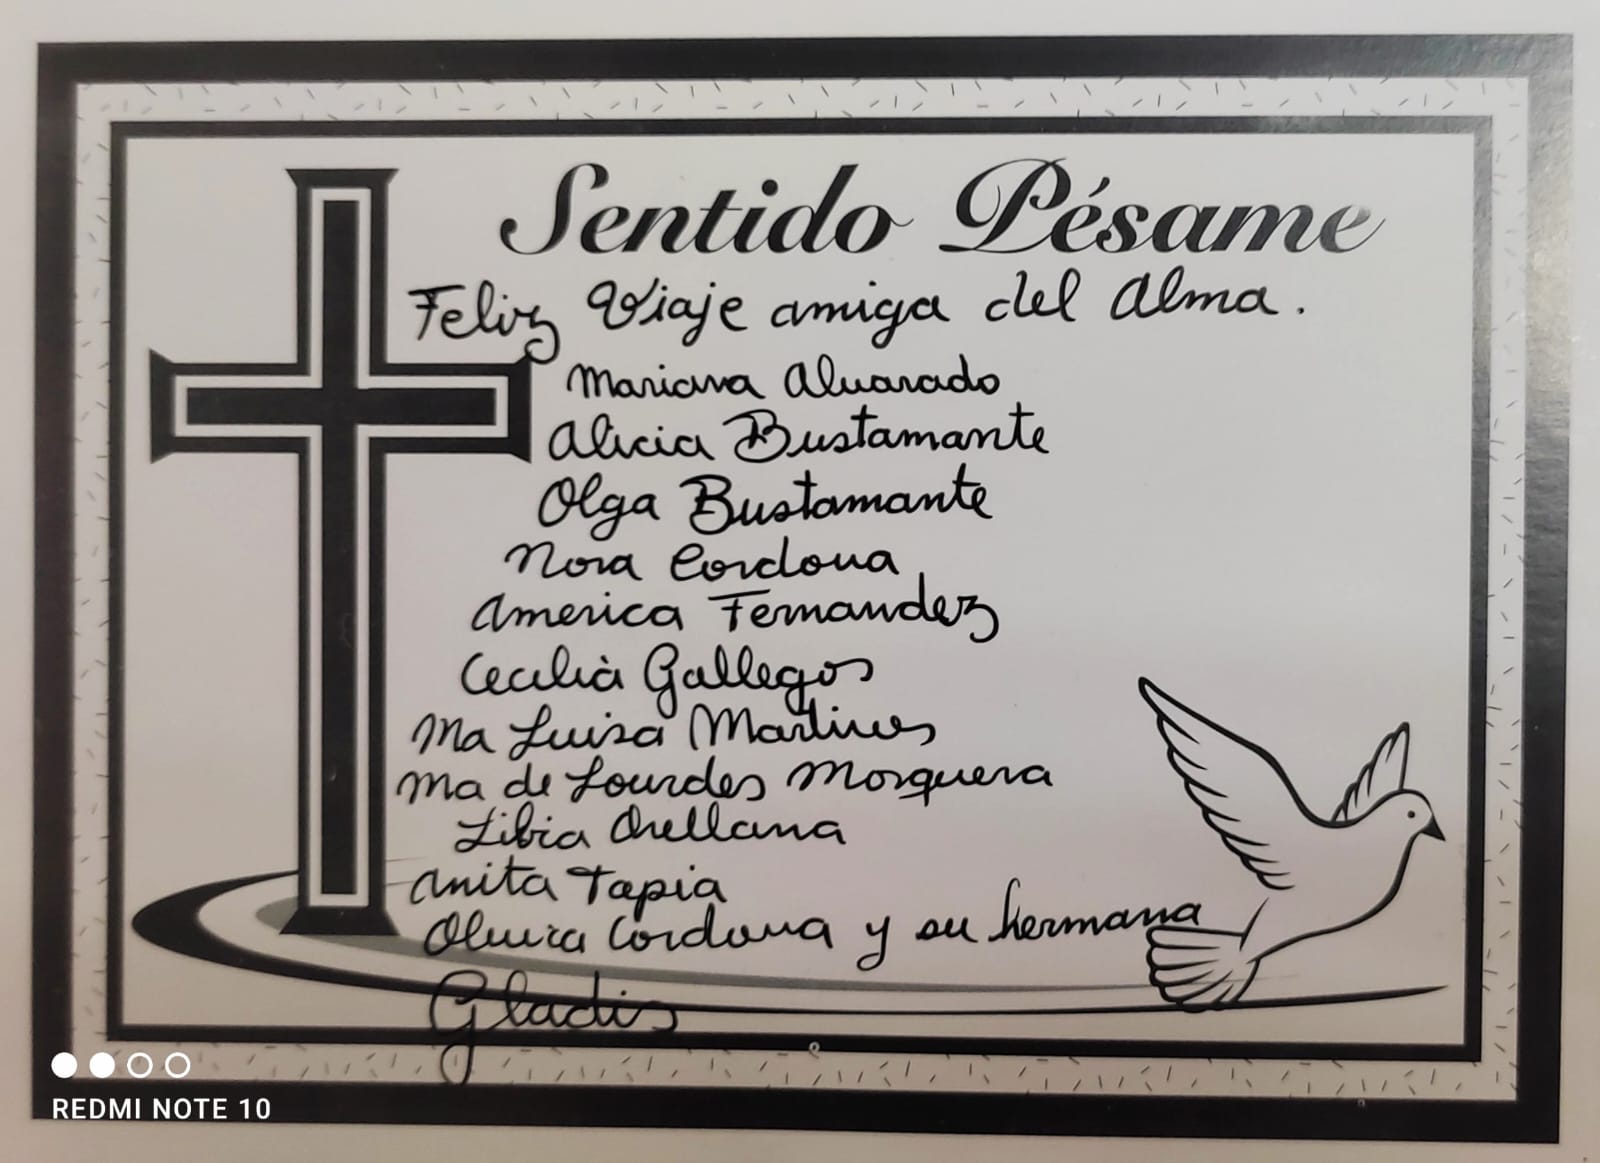 Sentido Pésame
Feliz Viaje amiga del Alma.
Mariana Alvarado
Alicia Bustamante
Olga Bustamante
Nora Cordova
America Fernandez
Cecilia Gallegos
Ma Luisa Martines
Ma de Lourdes Mosquera
Libia Orellana
Anita Tapia
Oluvia Cordova y su hermana
Gladis
REDMI NOTE 10